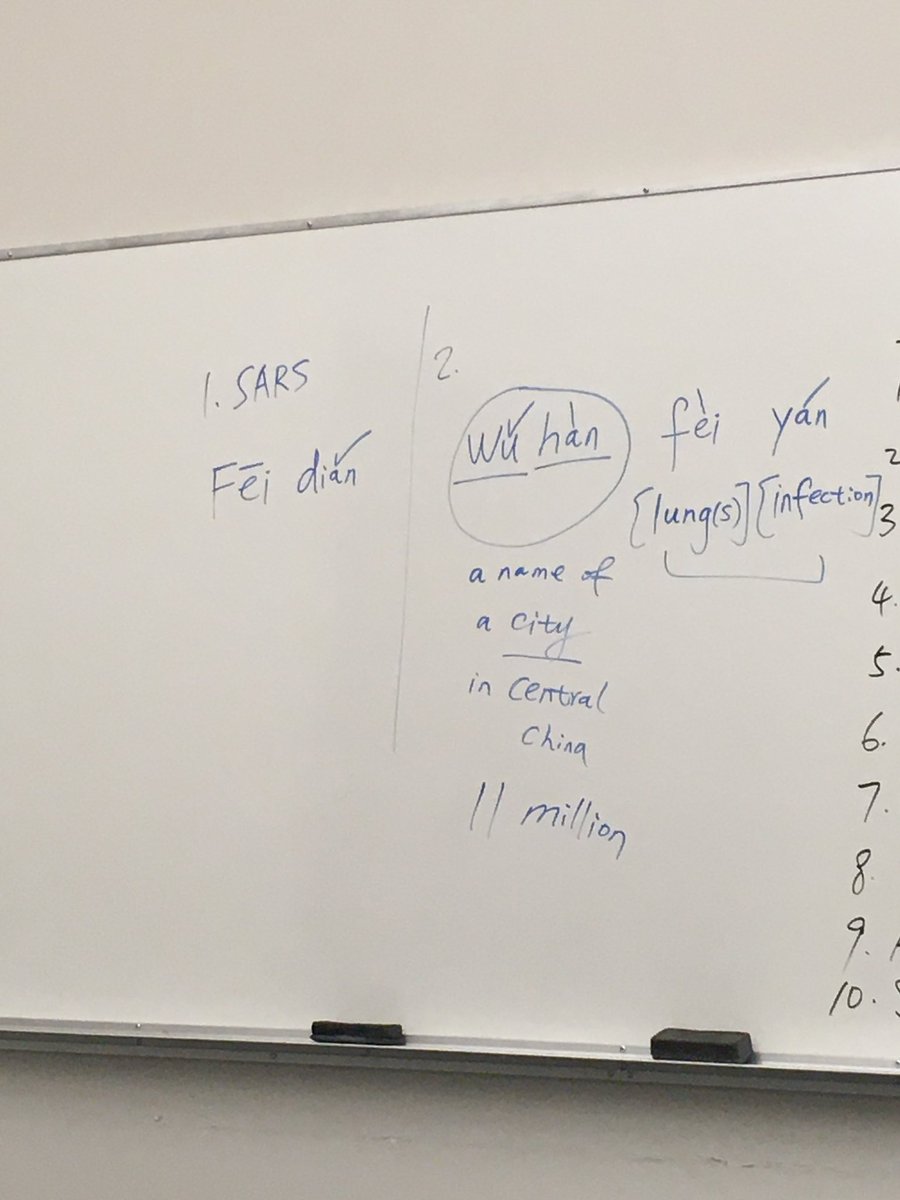 1. SARS
Fēi diǎn
2.
Wǔ hàn fèi yán
[lung(s)] [infection]
a name of
a city
in central
China
11 million
2
3
4.
5.
6.
7.
8.
9.
10.